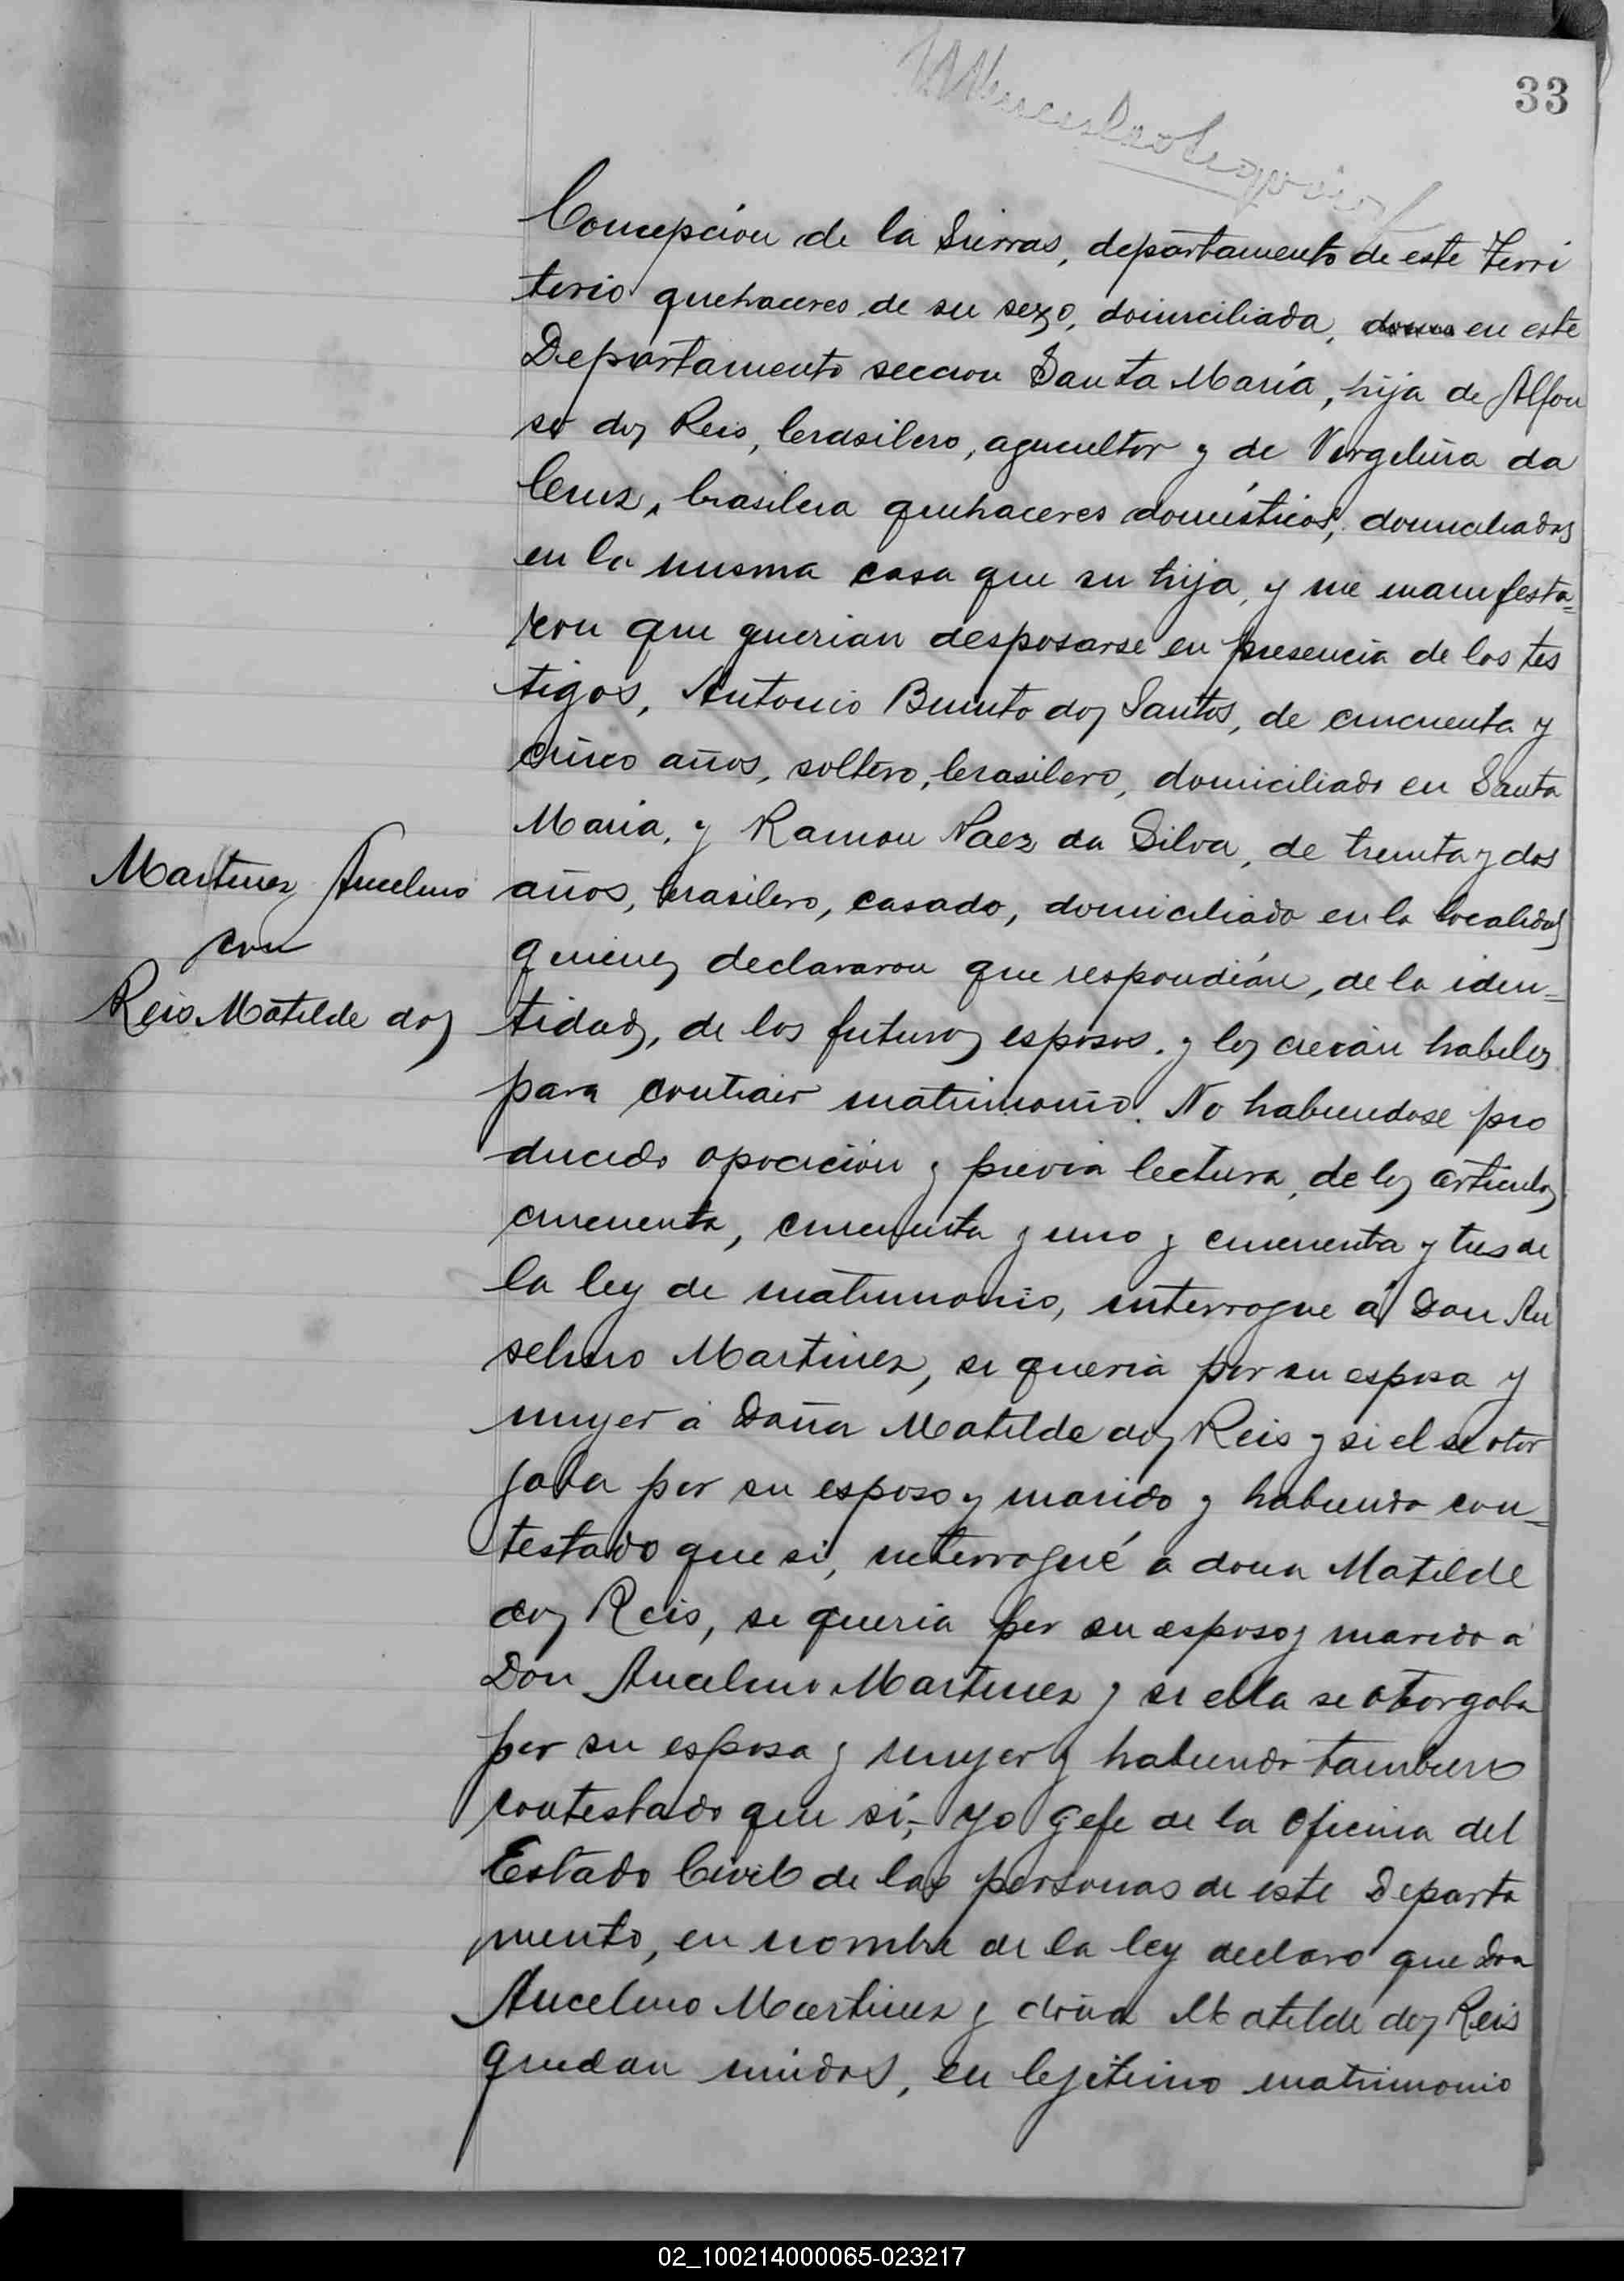 33
Concepción de la Sierras, departamento de este Terri
torio quehaceres de su sexo, domiciliada, en este
Departamento seccion Santa María, hija de Alfon
so dos Reis, brasilero, agricultor y de Vergelina da
Cruz, brasilera quehaceres domésticos, domiciliados
en la misma casa que su hija, y me manifesta=
ron que querian desposarse en presencia de los tes
tigos, Antonio Benito dos Santos, de cincuenta y
cinco años, soltero, brasilero, domiciliado en Santa
María, y Ramon Paez da Silva, de treinta y dos
años, brasilero, casado, domiciliado en la localidad
quienes declararon que respondián, de la iden=
tidad, de los futuros esposos. y los creián habeles
para contraer matrimonio. No habiendose pro
ducido oposición y previa lectura, de los articulos
cincuenta, cincuenta y uno y cincuenta y tres de
la ley de matrimonio, interrogue á Don An
selmo Martinez, si queria por su esposa y
muyer á Doña Matilde dos Reis y si el se otor
gaba por su esposo y marido y habiendo con=
testado que si, interrogué a dona Matilde
dos Reis, si queria por su esposo y marido a
Don Ancelmo Martinez y si ella se otorgaba
por su esposa y muyer y habiendo tambien
contestado que sí,- yo gefe de la oficina del
Estado Civil de las personas de este Departa
mento, en nombre de la ley declaro que Don
Ancelmo Martinez y doña Matilde dos Reis
quedan unidos, en lejitimo matrimonio
Martinez Ancelmo
con
Reis Matilde dos
02_100214000065-023217